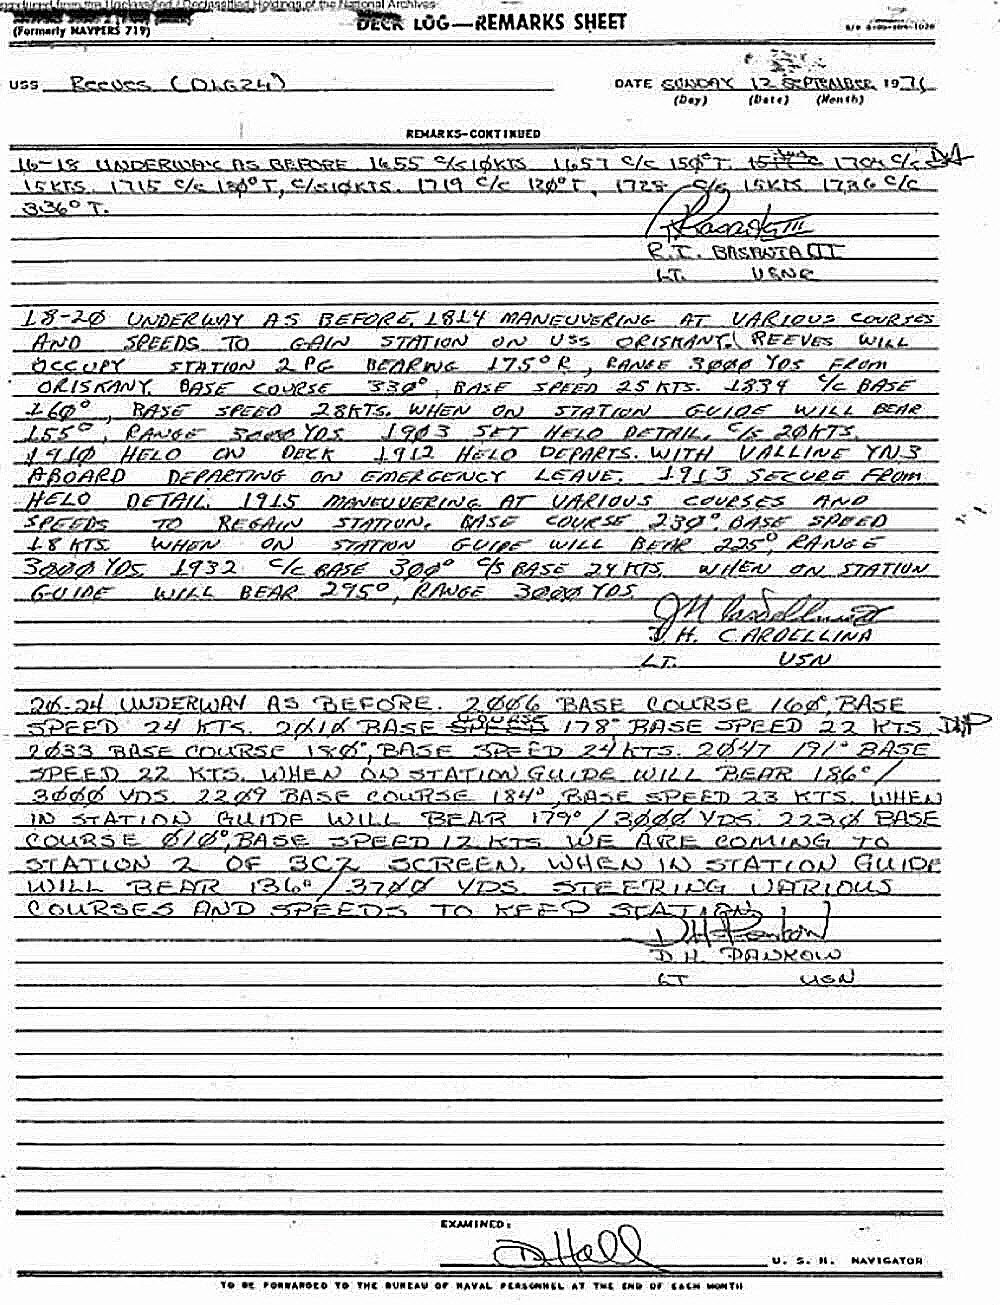 Reproduced from the Unclassified / Declassified Holdings of the National Archives
(Formerly NAVPERS 719)
DECK LOG—REMARKS SHEET
USS REEVES (DLG24)
DATE SUNDAY 12 SEPTEMBER 1971
(Day) (Date) (Month)
REMARKS—CONTINUED
16-18 UNDERWAY AS BEFORE 1655 C/S 1Ø KTS 1657 C/C 15Ø°T. 17Ø4 C/S
15 KTS. 1715 C/C 18Ø°T, C/S 1Ø KTS. 1719 C/C 12Ø°T, 1728 C/S 15 KTS 1736 C/C
336° T.
R.I. BASANTA III
LT. USNR
18-2Ø UNDERWAY AS BEFORE. 1814 MANEUVERING AT VARIOUS COURSES
AND SPEEDS TO GAIN STATION ON USS ORISKANY. REEVES WILL
OCCUPY STATION 2 PG BEARING 175°R, RANGE 3ØØØ YDS FROM
ORISKANY. BASE COURSE 33Ø°, BASE SPEED 25 KTS. 1834 C/C BASE
16Ø°, BASE SPEED 28KTS. WHEN ON STATION GUIDE WILL BEAR
155°, RANGE 3ØØØ YDS 19Ø3 SET HELO DETAIL, C/S 2ØKTS.
191Ø HELO ON DECK 1912 HELO DEPARTS. WITH VALLINE YN3
ABOARD DEPARTING ON EMERGENCY LEAVE. 1913 SECURE FROM
HELO DETAIL. 1915 MANEUVERING AT VARIOUS COURSES AND
SPEEDS TO REGAIN STATION. BASE COURSE 23Ø°. BASE SPEED
18 KTS. WHEN ON STATION GUIDE WILL BEAR 225°, RANGE
3ØØØ YDS. 1932 C/C BASE 3ØØ° C/S BASE 24 KTS. WHEN ON STATION
GUIDE WILL BEAR 295°, RANGE 3ØØØ YDS.
J. H. CARDELLINA
LT. USN
2Ø-24 UNDERWAY AS BEFORE. 2ØØ6 BASE COURSE 16Ø°, BASE
SPEED 24 KTS. 2Ø1Ø BASE COURSE 178° BASE SPEED 22 KTS.
2Ø33 BASE COURSE 18Ø°, BASE SPEED 24 KTS. 2Ø47 191° BASE
SPEED 22 KTS. WHEN ON STATION GUIDE WILL BEAR 186°/
3ØØØ YDS. 22Ø9 BASE COURSE 184°, BASE SPEED 23 KTS. WHEN
IN STATION GUIDE WILL BEAR 179°/3ØØØ YDS. 223Ø BASE
COURSE Ø1Ø°, BASE SPEED 12 KTS. WE ARE COMING TO
STATION 2 OF 3CZ SCREEN. WHEN IN STATION GUIDE
WILL BEAR 136°/37ØØ YDS. STEERING VARIOUS
COURSES AND SPEEDS TO KEEP STATION
D.H. PANKOW
LT USN
EXAMINED:
D Hall
U. S. N. NAVIGATOR
TO BE FORWARDED TO THE BUREAU OF NAVAL PERSONNEL AT THE END OF EACH MONTH